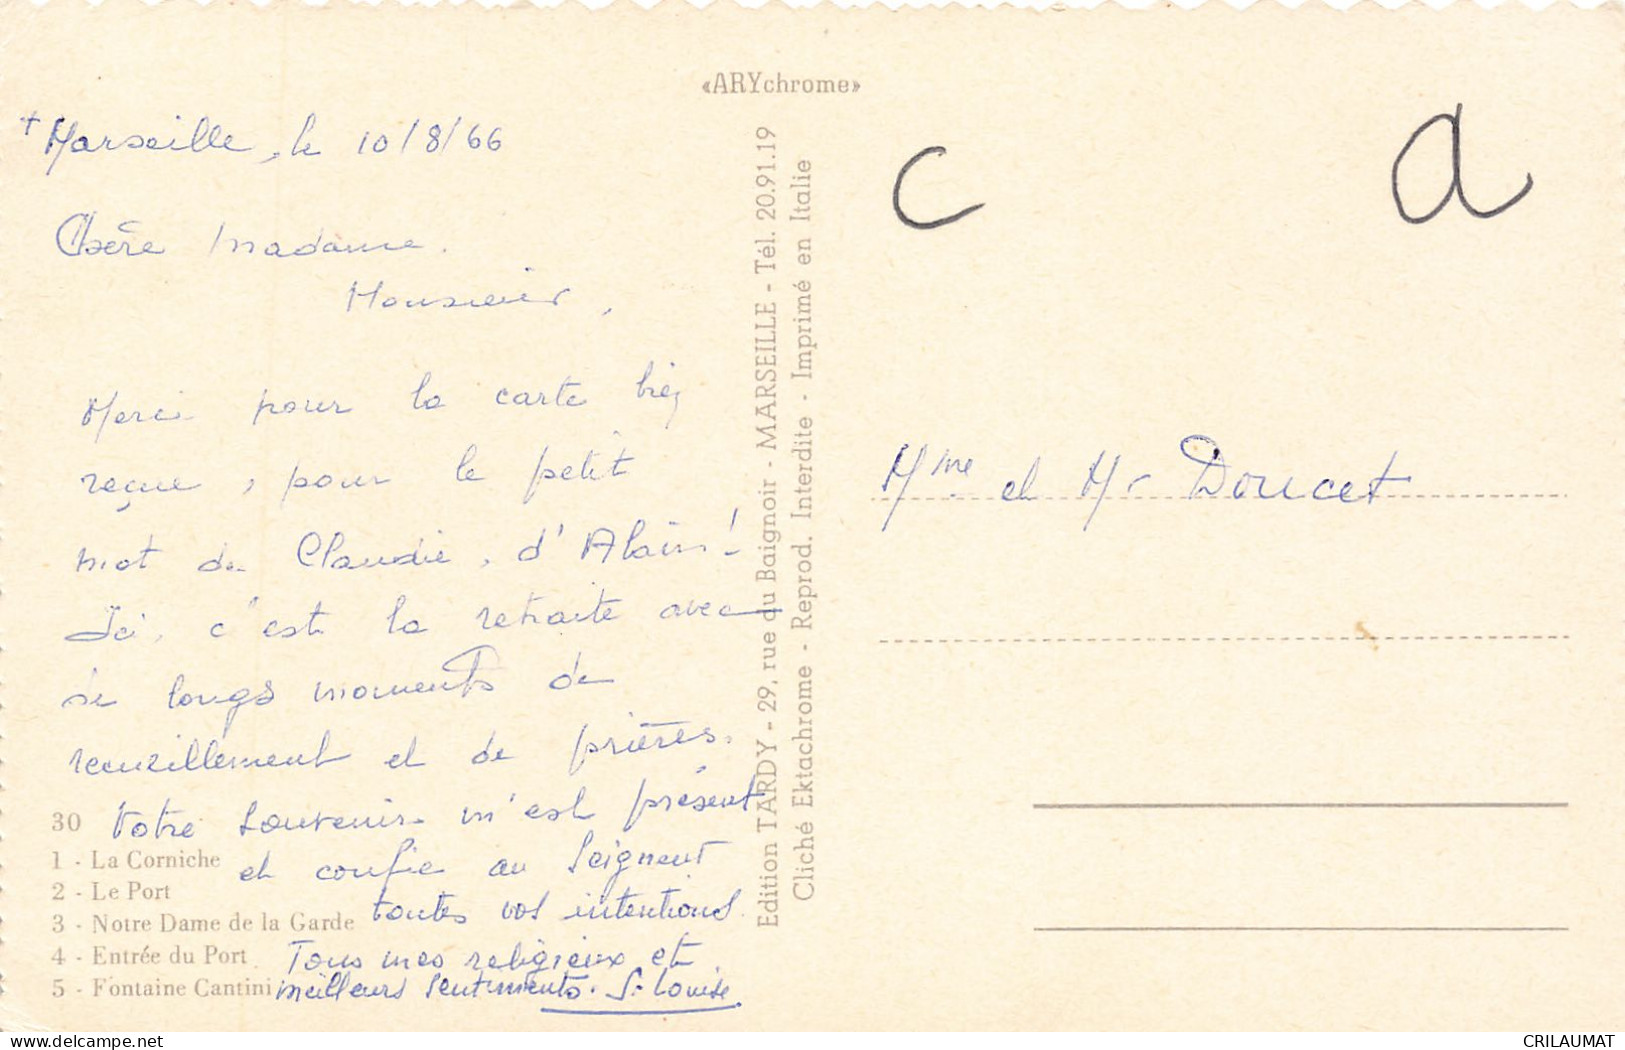 «ARYchrome»
+ Marseille, le 10/8/66
Chère Madame.
Monsieur,
Merci pour la carte bien
reçue, pour le petit
mot de Claudie, d'Alain!
Ici, c'est la retraite avec
de longs moments de
recueillement et de prières.
Votre souvenir m'est présent
et confie au Seigneur
toutes vos intentions.
Tous mes religieux et
meilleurs sentiments. Sr Louise
30
1 - La Corniche
2 - Le Port
3 - Notre Dame de la Garde
4 - Entrée du Port
5 - Fontaine Cantini
Edition TARDY - 29, rue du Baignoir - MARSEILLE - Tél. 20.91.19
Cliché Ektachrome - Reprod. Interdite - Imprimé en Italie
c a
Mme et Mr Doucet
delcampe.net
CRILAUMAT